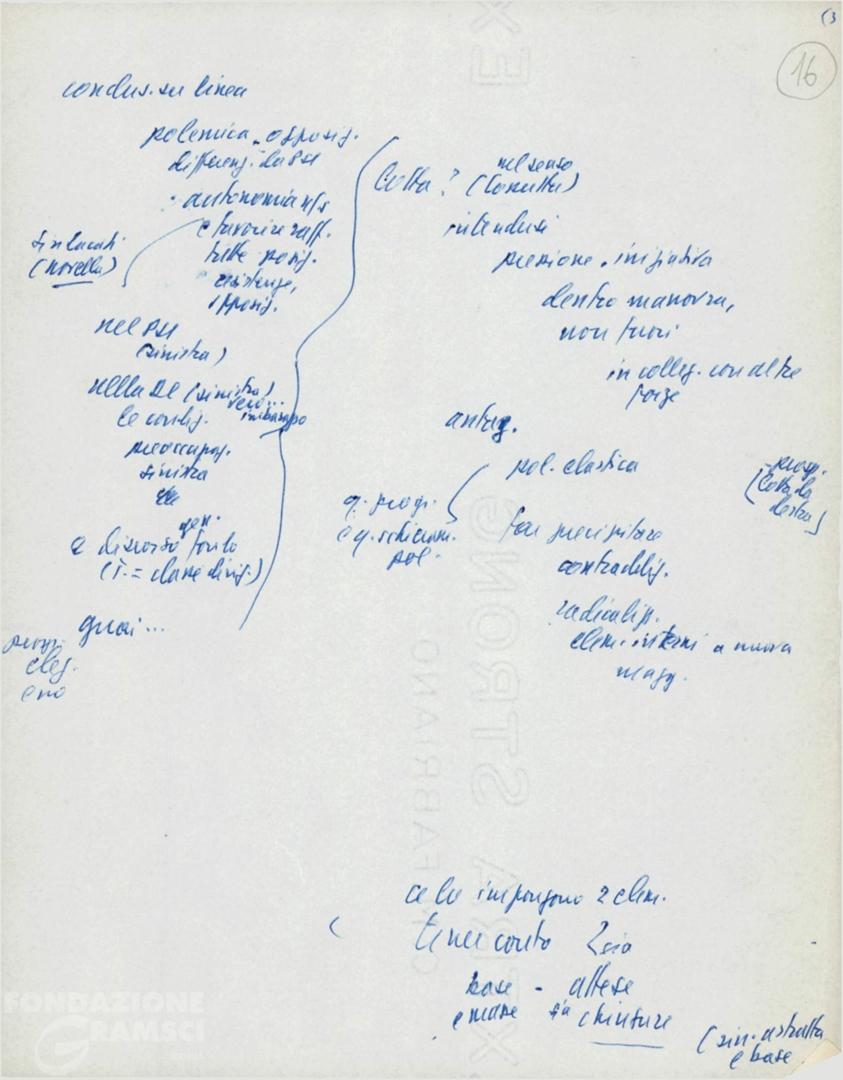 (3
16
conclus. su linea
polemica, opposiz.
differenz. da PSI
autonomia ns
e favorire raff.
tutte posiz.
esistenze,
opposiz.
sindacati
(Novella)
nel PSI
(sinistra)
nella DC (sinistra)
vero...
imbarazzo
le contig.
preoccupaz.
sinistra
e discorso gen. fondo
(T. = classe dirig.)
guai...
prosp.
elez.
Lotta? nel senso
(Consulta)
intendersi
pressione, iniziativa
dentro manovra,
non fuori
in colleg. con altre
forze
pol. elastica
q. progr.
e q. schieram.
pol.
far precipitare
contraddiz.
radicaliz.
elem. interni a nuova
magg.
- prosp.
(lotta da
destra)
ce lo impongono 2 elem.
tener conto 2 sia
base - attese
e masse sia chiusure
(sin. astratta
e base
FONDAZIONE
GRAMSCI
EXTRA STRONG
FABRIANO